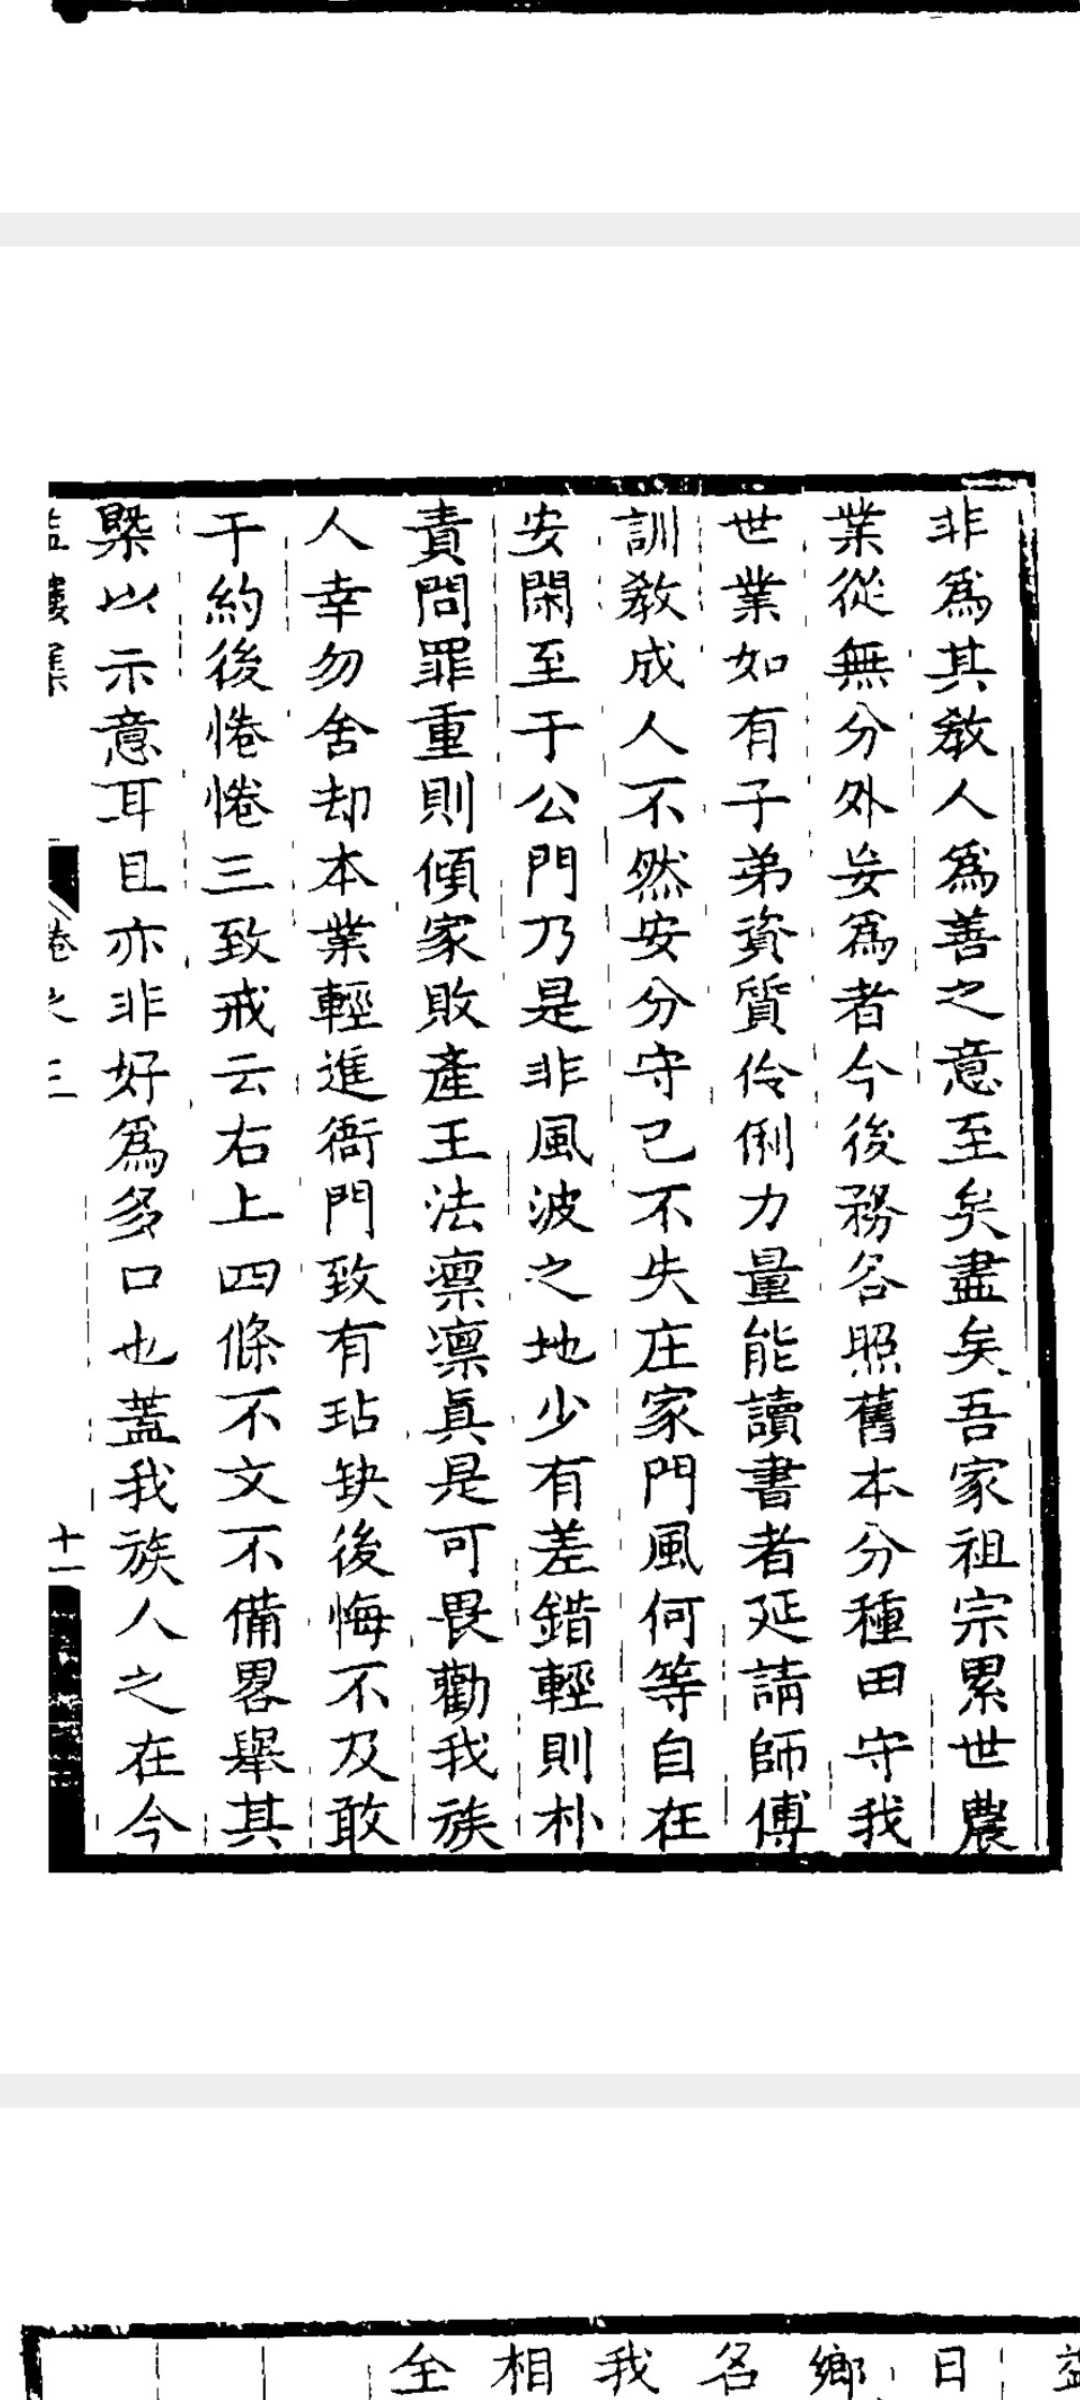 非爲其教人爲善之意至矣盡矣吾家祖宗累世農
業從無分外妄爲者今後務各照舊本分種田守我
世業如有子弟資質伶俐力量能讀書者延請師傅
訓教成人不然安分守己不失庄家門風何等自在
安閑至于公門乃是非風波之地少有差錯輕則朴
責問罪重則傾家敗產王法凛凛眞是可畏勸我族
人幸勿舍却本業輕進衙門致有玷缺後悔不及敢
于約後惓惓三致戒云右上四條不文不備畧舉其
槩以示意耳且亦非好爲多口也蓋我族人之在今
卷之三
十一
日
鄉
名
我
相
全